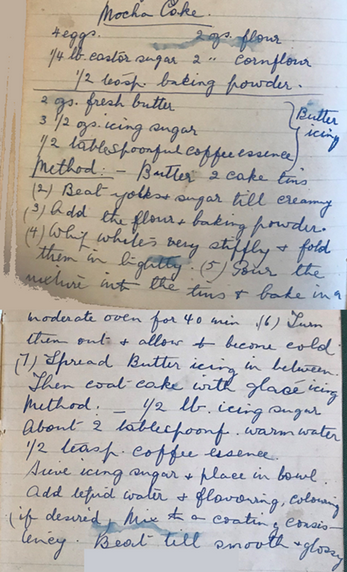 Mocha Cake.
4 eggs. 2 ozs. flour
1/4 lb. castor sugar 2 " cornflour
1/2 teasp. baking powder.
2 ozs. fresh butter
3 1/2 ozs. icing sugar
1/2 tablespoonful coffee essence
Butter icing
Method: - Butter 2 cake tins
(2) Beat yolks & sugar till creamy
(3) Add the flour & baking powder.
(4) Whip whites very stiffly & fold
them in lightly. (5) Pour the
mixture into the tins & bake in a
moderate oven for 40 min. (6) Turn
them out & allow to become cold.
(7) Spread Butter icing in between.
Then coat cake with glacé icing
Method: - 1/2 lb. icing sugar
About 2 tablespoonf. warm water
1/2 teasp. coffee essence.
Sieve icing sugar & place in bowl.
Add tepid water & flavouring, colouring
(if desired, Mix to a coating consis-
tency. Beat till smooth & glossy